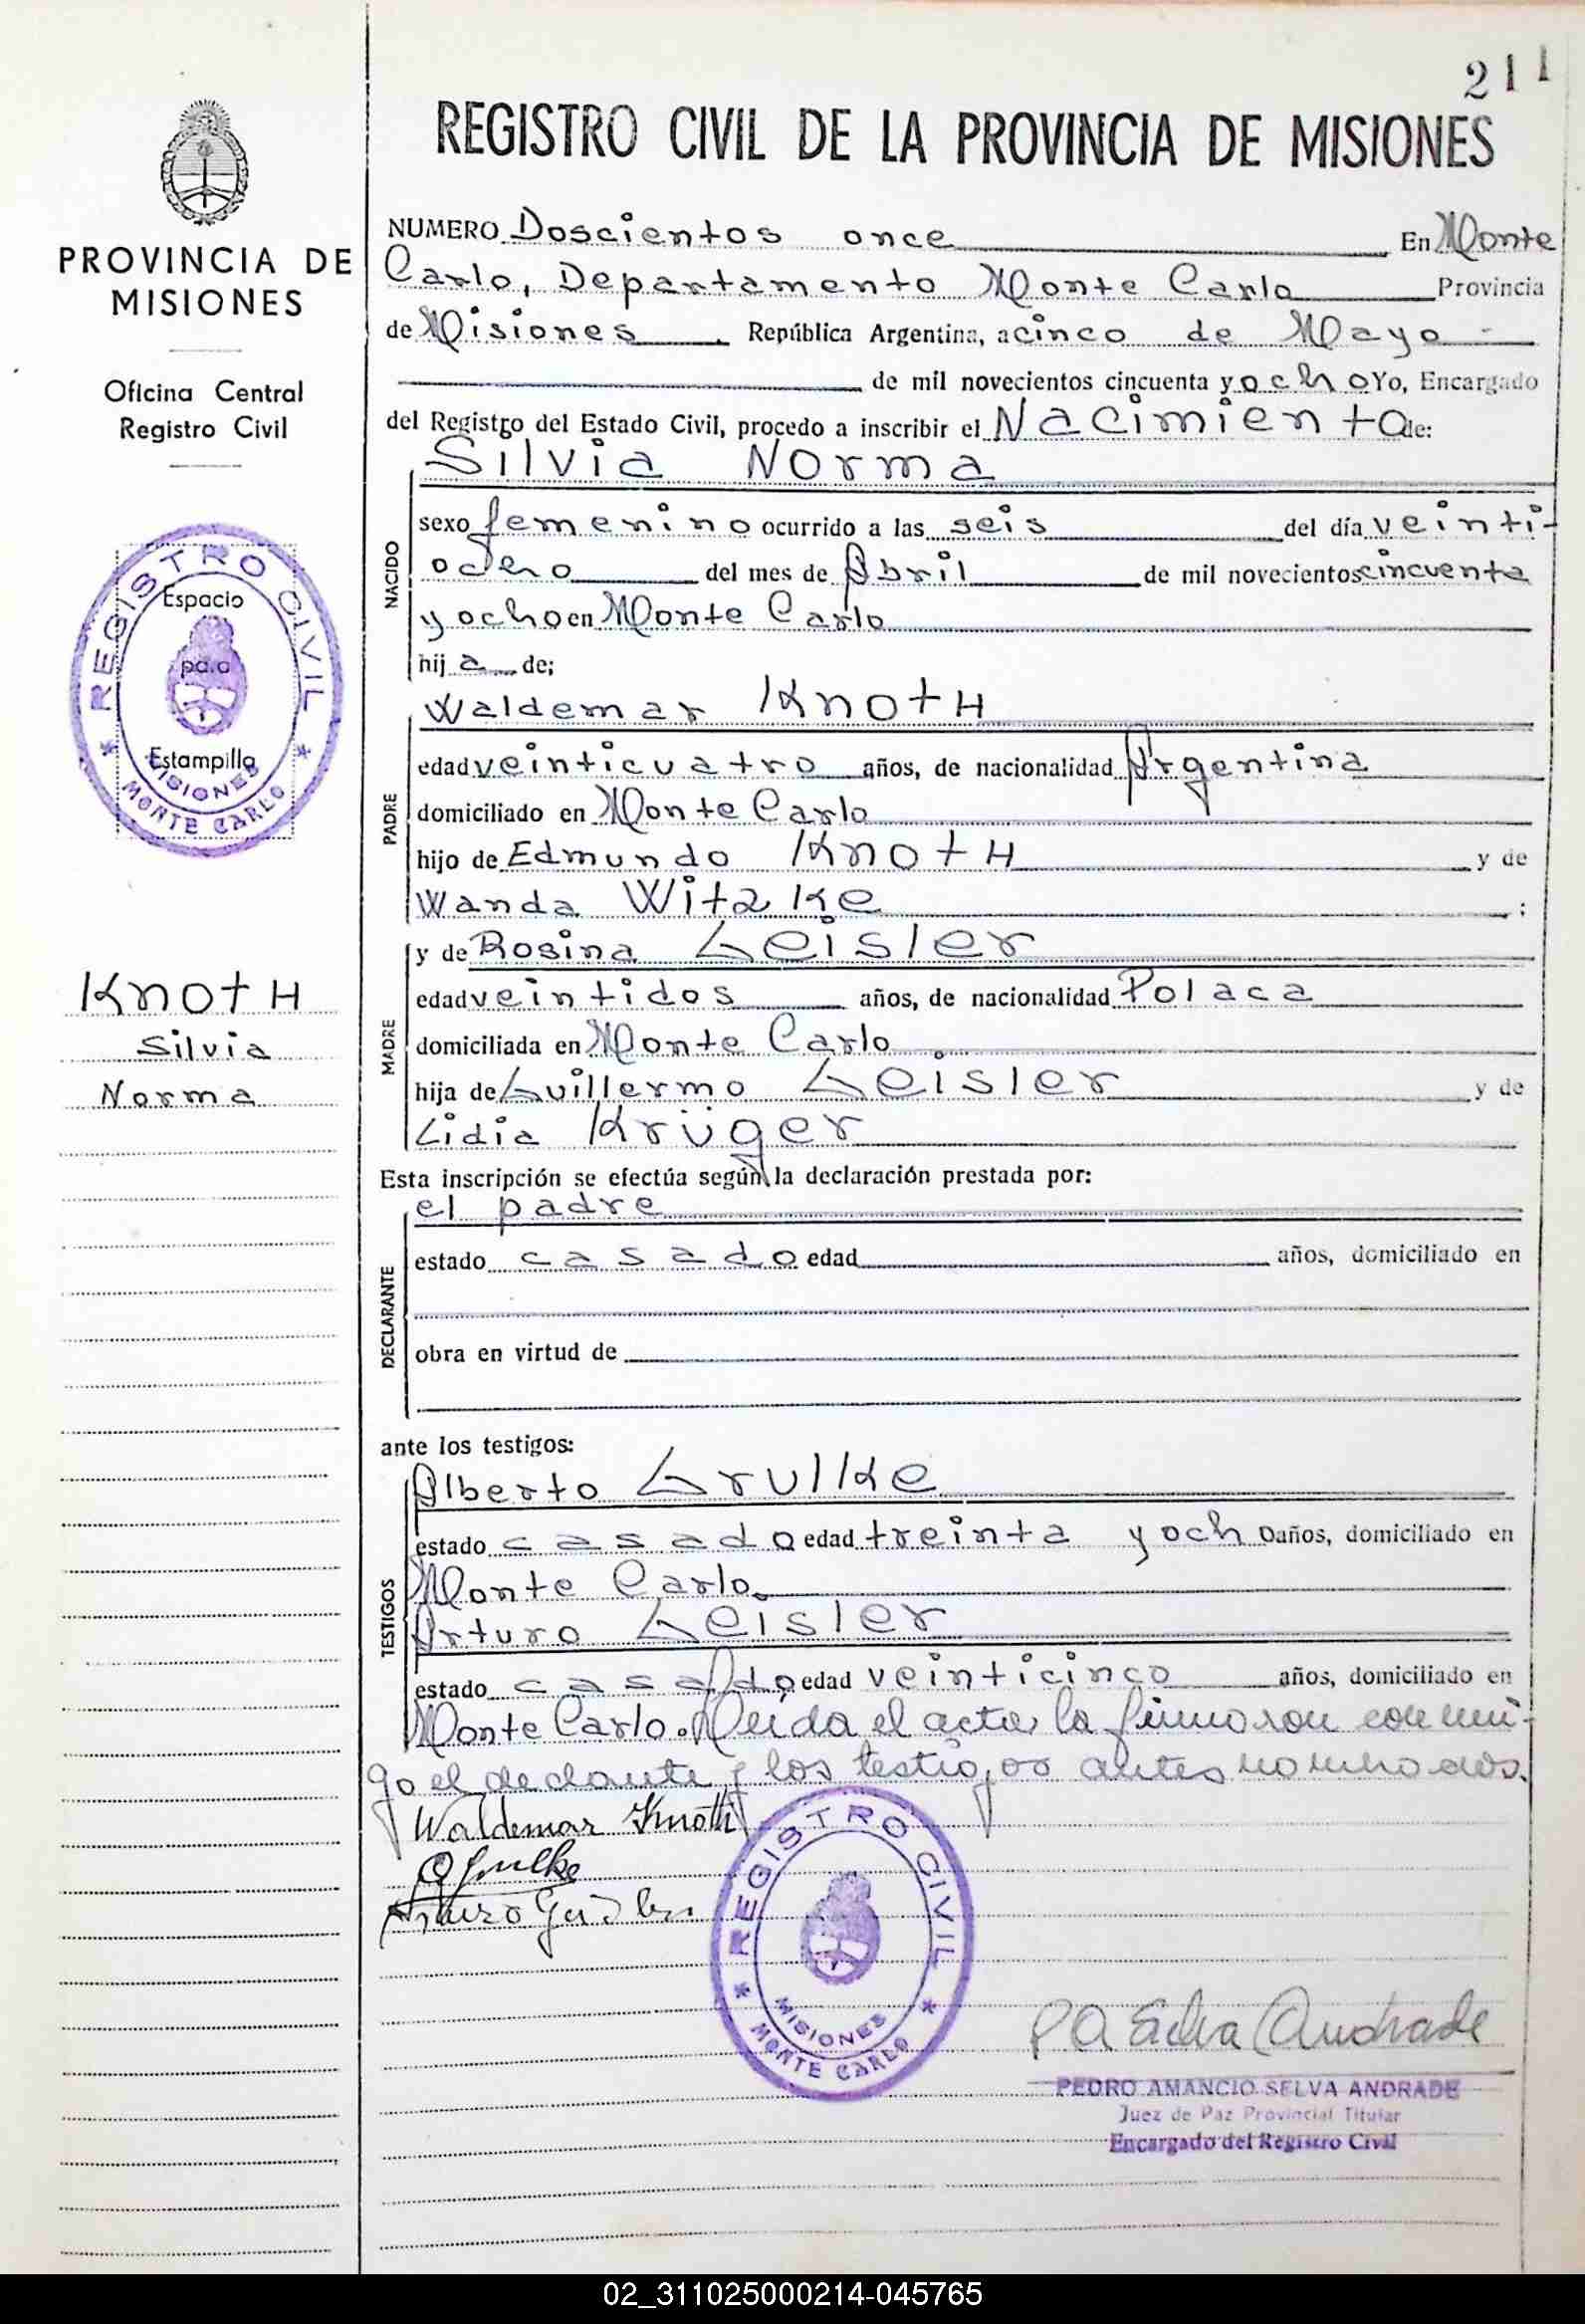 211
REGISTRO CIVIL DE LA PROVINCIA DE MISIONES
PROVINCIA DE
MISIONES
Oficina Central
Registro Civil
REGISTRO CIVIL
Espacio
para
Estampilla
MISIONES
MONTE CARLO
KnotH
Silvia
Norma
NUMERO Doscientos once En Monte
Carlo, Departamento Monte Carlo Provincia
de Misiones República Argentina, a cinco de Mayo
de mil novecientos cincuenta y ocho Yo, Encargado
del Registro del Estado Civil, procedo a inscribir el Nacimiento de:
Silvia Norma
NACIDO
sexo femenino ocurrido a las seis del día veinti-
ocho del mes de Abril de mil novecientos cincuenta
y ocho en Monte Carlo
hij a de;
Waldemar KnotH
PADRE
edad veinticuatro años, de nacionalidad Argentina
domiciliado en Monte Carlo
hijo de Edmundo KnotH y de
Wanda Witzke ;
y de Rosina Geisler
MADRE
edad veintidos años, de nacionalidad Polaca
domiciliada en Monte Carlo
hija de Guillermo Geisler y de
Lidia Krüger
Esta inscripción se efectúa según la declaración prestada por:
el padre
DECLARANTE
estado casado edad años, domiciliado en
obra en virtud de
ante los testigos:
Alberto Grulke
TESTIGOS
estado casado edad treinta y ocho años, domiciliado en
Monte Carlo
Arturo Geisler
estado casado edad veinticinco años, domiciliado en
Monte Carlo. Leida el acta, la firmaron conmi-
go el declante y los testigos antes nombrados.
Waldemar Knoth
A Grulke
Arturo Geisler
REGISTRO CIVIL
MISIONES
MONTE CARLO
P A Selva Andrade
PEDRO AMANCIO SELVA ANDRADE
Juez de Paz Provincial Titular
Encargado del Registro Civil
02_311025000214-045765